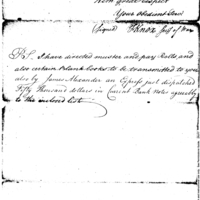 with great respect
Your Obedient Serv
(Signed) HKnox Secy of War
P.S. I have directed muster and pay Rolls, and
also certain Blank books to be transmitted to you
also by James Alexander an Express just dispatched
Fifty thousand dollars in Current Bank Notes agreeably
to the inclosed list.